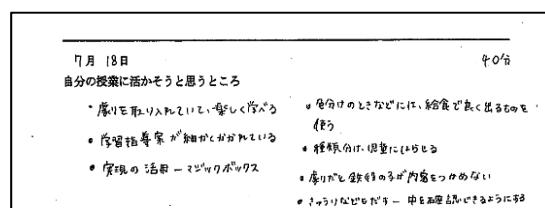 7月 18日
40分
自分の授業に活かそうと思うところ
・劇を取り入れていて、楽しく学べる
・学習指導案が細かくかかれている
・実現の活用ーマジックボックス
・色分けのときなどには、給食で良く出るものを
使う
・種類分け、児童にはらせる
・劇だと
の子が内容をつかめない
・きゅうりなどをだすー中を確認できるようにする